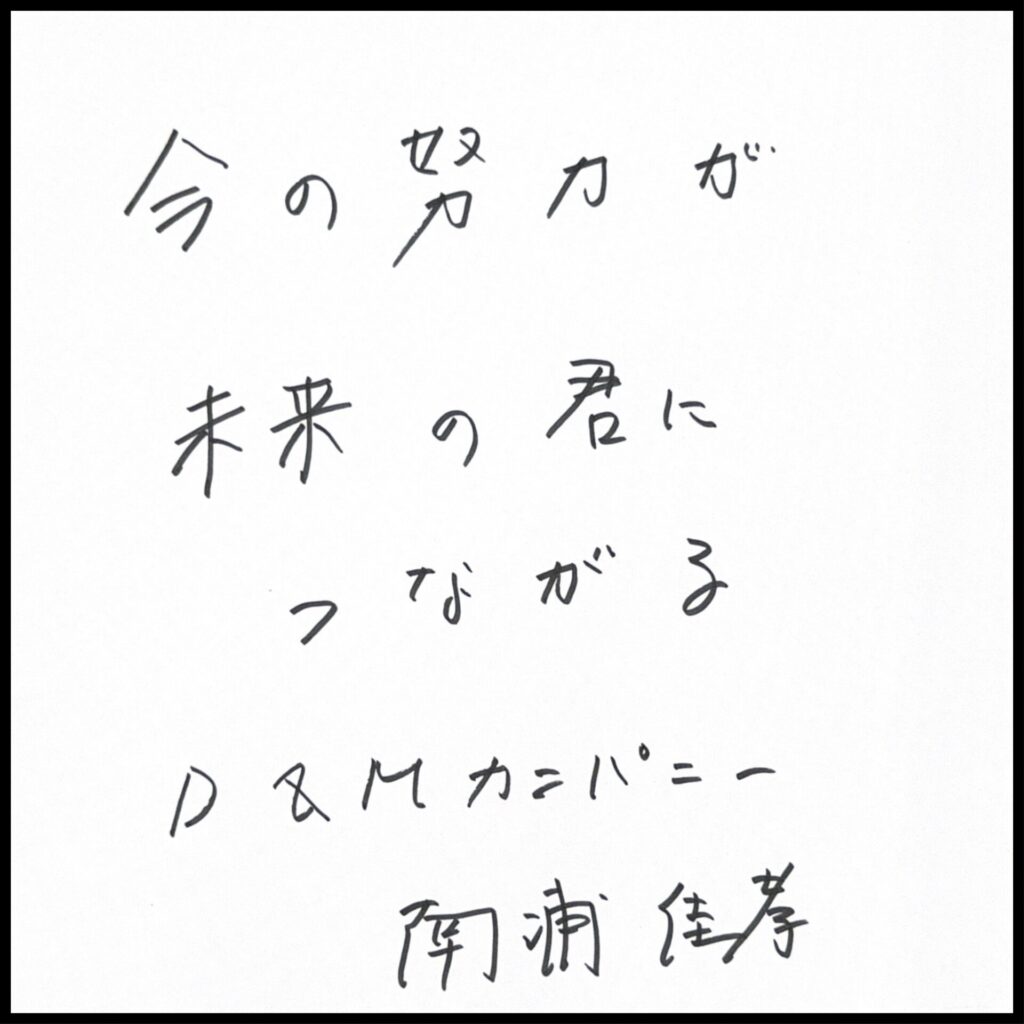 今の努力が
未来の君に
つながる
D&Mカニパニー
南浦佳孝